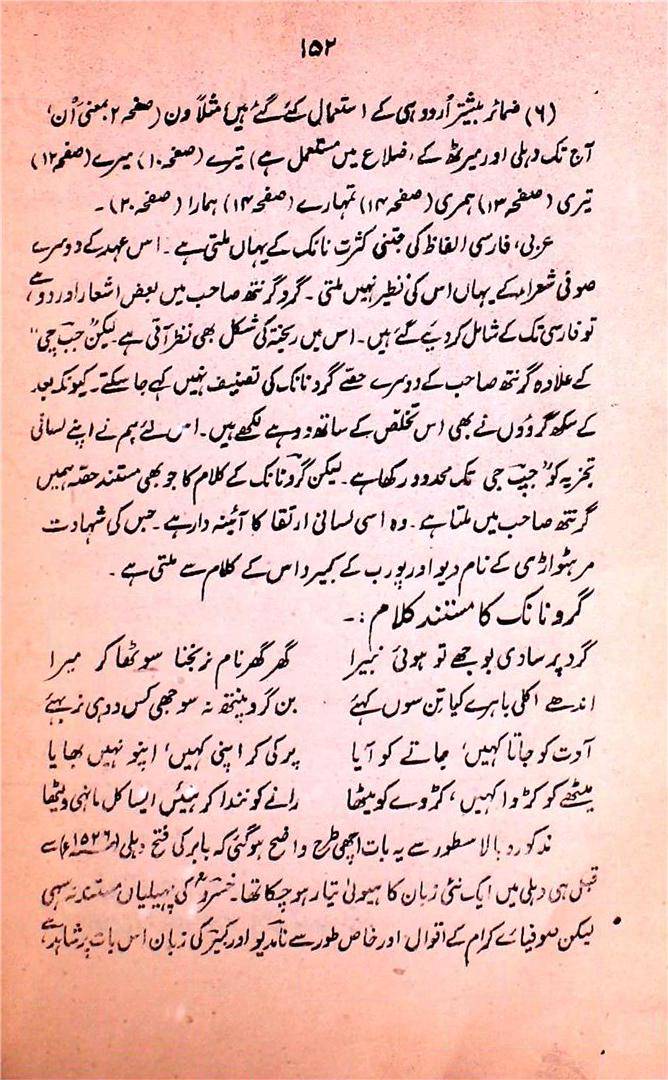 ۱۵۲
(۶) ضمائر بیشتر اُردو ہی کے استعمال کئے گئے ہیں مثلاً ون (صفحہ ۲ بمعنی اُن،
آج تک دہلی اور میرٹھ کے اضلاع میں مستعمل ہے) تیرے (صفحہ ۱۰) میرے (صفحہ ۱۲)
تیری (صفحہ ۱۳) ہمری (صفحہ ۱۴) تمہارے (صفحہ ۱۴) ہمارا (صفحہ ۲۰)۔
عربی، فارسی الفاظ کی جتنی کثرت نانک کے یہاں ملتی ہے۔ اس عہد کے دوسرے
صوفی شعراء کے یہاں اس کی نظیر نہیں ملتی۔ گرو گرنتھ صاحب میں بعض اشعار اور دوہے،
تو فارسی تک کے شامل کر دیئے گئے ہیں۔ اس میں ریختہ کی شکل بھی نظر آتی ہے۔ لیکن ”جپ جی“
کے علاوہ گرنتھ صاحب کے دوسرے حصے گرو نانک کی تصنیف نہیں کہے جا سکتے۔ کیونکہ بعد
کے سکھ گروؤں نے بھی اس تخلص کے ساتھ دوہے لکھے ہیں۔ اس لئے ہم نے اپنے لسانی
تجزیہ کو ”جپ جی تک محدود رکھا ہے۔ لیکن گرو نانک کے کلام کا جو بھی مستند حصہ ہمیں
گرنتھ صاحب میں ملتا ہے۔ وہ اسی لسانی ارتقا کا آئینہ دار ہے۔ جس کی شہادت
مرہٹواڑی کے نام دیو اور پورب کے کبیر داس کے کلام سے ملتی ہے۔
گرو نانک کا مستند کلام :۔
گرد پرسادی بوجھے تو ہوئی نبیرا گھر گھر نام نرنجنا سو ٹھاکر میرا
اندھے اکلی باہرے کیا تِن سوں کہئے بن گرو پنتھ نہ سوجھی کس ددہی نربہئے
آوت کو جاتا کہیں، جاتے کو آیا پر کی کر اپنی کہیں، اپنو نہیں بھایا
میٹھے کو کڑوا کہیں، کڑوے کو میٹھا رانے کو نندا کر ہیئں ایسا کل مانہی ڈیٹھا
مذکورہ بالا سطور سے یہ بات اچھی طرح واضح ہو گئی کہ بابر کی فتح دہلی (۱۵۲۶ء) سے
قبل ہی دہلی میں ایک نئی زبان کا ہیولیٰ تیار ہو چکا تھا۔ خسرو کی پہیلیاں مستند نہ سہی
لیکن صوفیائے کرام کے اقوال اور خاص طور سے نامدیو اور کبیر کی زبان اس بات پر شاہد ہے